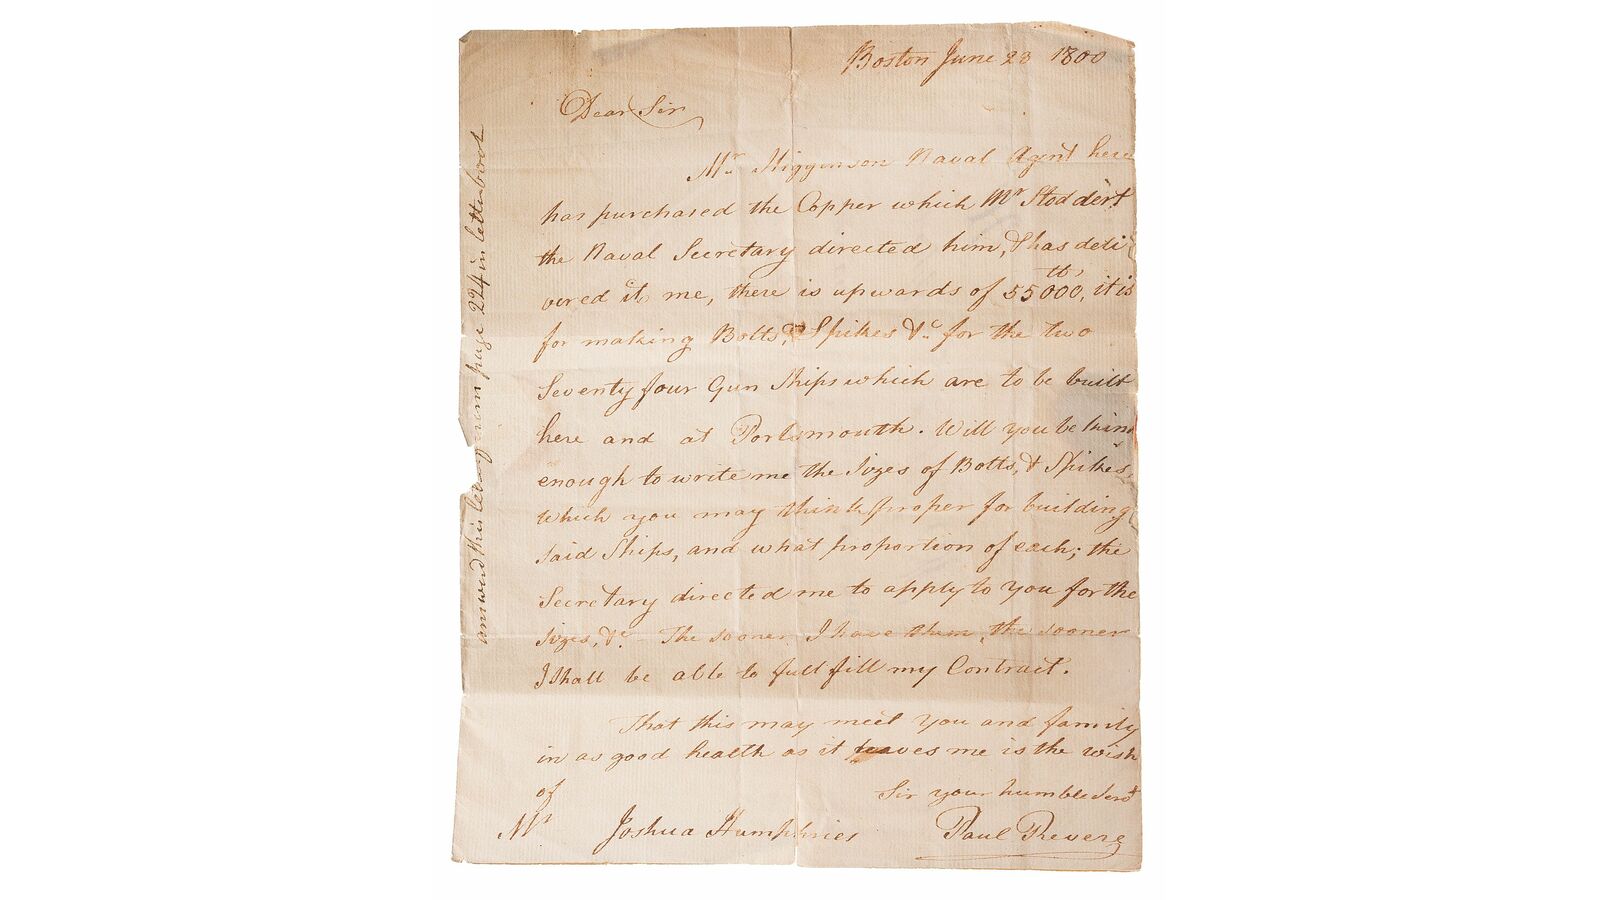 Boston June 23 1800
Dear Sir
Mr. Higginson Naval Agent here
has purchased the Copper which Mr Stoddert
the Naval Secretary directed him, & has deli
vered it me, there is upwards of 55000, it is
for making Bolts, Spikes &c. for the two
Seventy four Gun Ships which are to be built
here and at Portsmouth. Will you be kind
enough to write me the sizes of Bolts, & Spikes,
which you may think proper for building
said Ships, and what proportion of each; the
Secretary directed me to apply to you for the
sizes, &c. The sooner I have them, the sooner
I shall be able to full fill my Contract.
That this may meet you and family
in as good health as it leaves me is the wish
of
Sir your humble Servt
Mr Joshua Humphries Paul Revere
answerd this page 224 in letter book